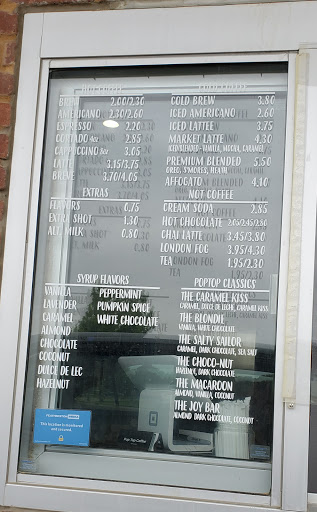 HOT COFFEE
BREW 2.00/2.30
AMERICANO 2.30/2.60
ESPRESSO 2.20
CORTADO 4oz 2.85
CAPPUCCINO 8oz 3.05
LATTE 3.15/3.75
BREVE 3.70/4.05
EXTRAS
FLAVORS 0.75
EXTRA SHOT 1.30
ALT. MILK 0.80
COLD BREW 3.80
ICED AMERICANO 2.60
ICED LATTE 3.75
MARKET LATTE 4.30
PREMIUM BLENDED 5.50
OREO, S'MORES, HEATH
AFFOGATO 4.10
NOT COFFEE
CREAM SODA 2.85
HOT CHOCOLATE 2.05/2.45/2.80
CHAI LATTE 3.45/3.80
LONDON FOG 3.95/4.30
TEA 1.95/2.30
SYRUP FLAVORS
VANILLA
LAVENDER
CARAMEL
ALMOND
CHOCOLATE
COCONUT
DULCE DE LEC
HAZELNUT
PEPPERMINT
PUMPKIN SPICE
WHITE CHOCOLATE
POPTOP CLASSICS
THE CARAMEL KISS
CARAMEL, DULCE DE LECHE, CARAMEL KISS
THE BLONDIE
VANILLA, WHITE CHOCOLATE
THE SALTY SAILOR
CARAMEL, DARK CHOCOLATE, SEA SALT
THE CHOCO-NUT
HAZELNUT, DARK CHOCOLATE
THE MACAROON
ALMOND, VANILLA, COCONUT
THE JOY BAR
ALMOND, DARK CHOCOLATE, COCONUT
This location is monitored
and secured.
Pop Top Coffee